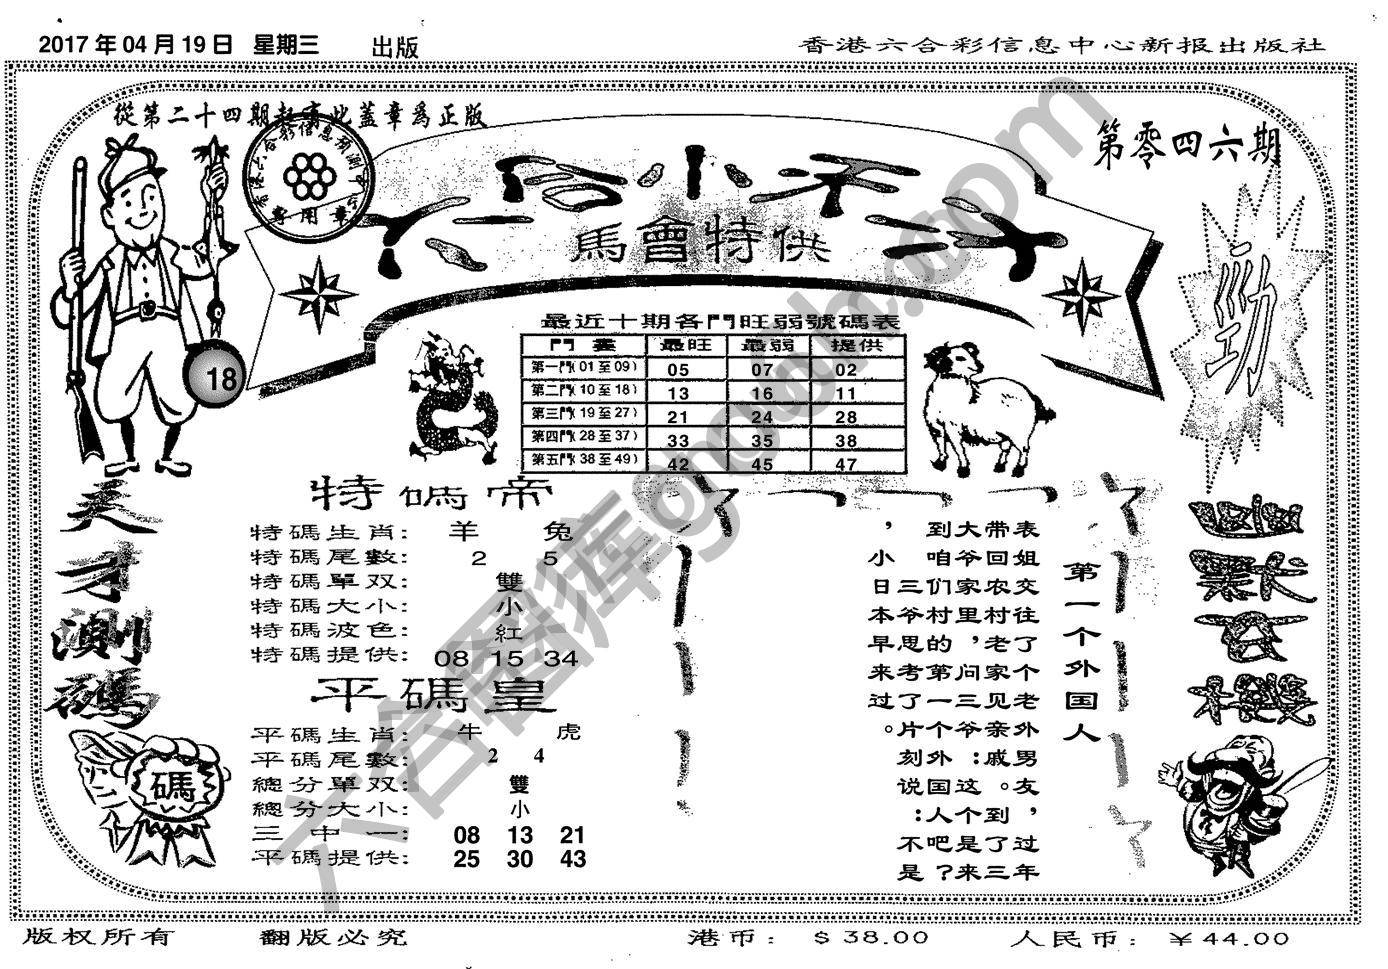 2017年04月19日 星期三 出版
香港六合彩信息中心新报出版社
從第二十四期起寄此蓋章爲正版
第零四六期
六合小天子
馬會特供
專用章
勁
18
最近十期各門旺弱號碼表
門叢 最旺 最弱 提供
第一門(01至09) 05 07 02
第二門(10至18) 13 16 11
第三門(19至27) 21 24 28
第四門(28至37) 33 35 38
第五門(38至49) 42 45 47
天才測碼
碼
特碼帝
特碼生肖: 羊 兔
特碼尾數: 2 5
特碼單双: 雙
特碼大小: 小
特碼波色: 紅
特碼提供: 08 15 34
平碼皇
平碼生肖: 牛 虎
平碼尾數: 2 4
總分單双: 雙
總分大小: 小
三中一: 08 13 21
平碼提供: 25 30 43
第一个外国人
表姐交往了个老外男友，过年
带回农村老家见亲戚。到了三
大爷家里，问三爷：这个是来
到咱们村的第一个外国人吧？
三爷思考了片刻说：不是
，小日本早来过。
版权所有 翻版必究 港币：$38.00 人民币：￥44.00
六合图库